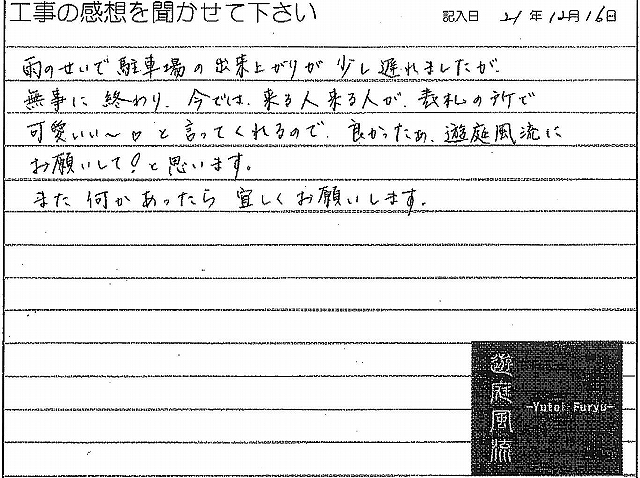 工事の感想を聞かせて下さい
記入日 21年12月16日
雨のせいで駐車場の出来上がりが少し遅れましたが、
無事に終わり、今では、来る人来る人が、表札の所で
可愛いい〜♡と言ってくれるので、良かったぁ、遊庭風流に
お願いして！と思います。
また何かあったら宜しくお願いします。
遊庭風流
-Yutei Furyu-